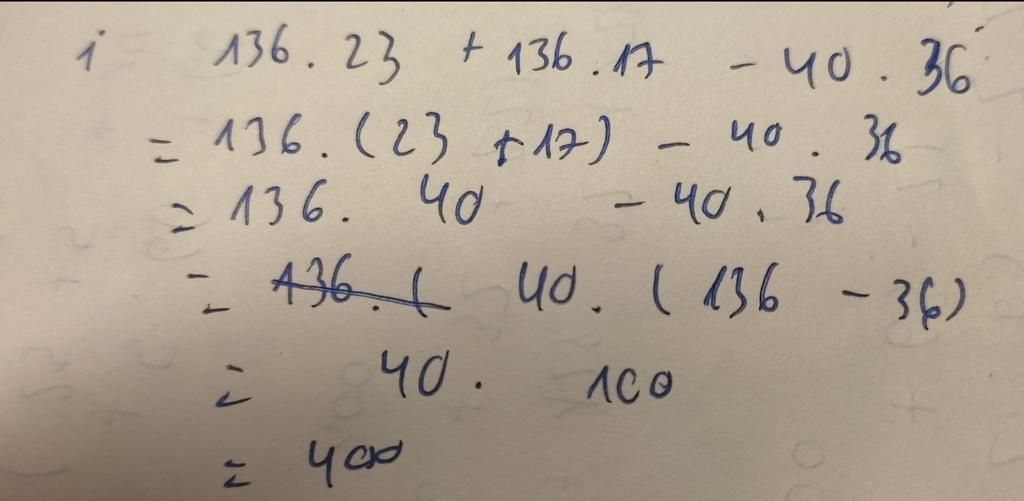 i 136 . 23 + 136 . 17 - 40 . 36
= 136 . ( 23 + 17 ) - 40 . 36
= 136 . 40 - 40 . 36
= 136 . ( 40 . ( 136 - 36 )
= 40 . 100
= 400